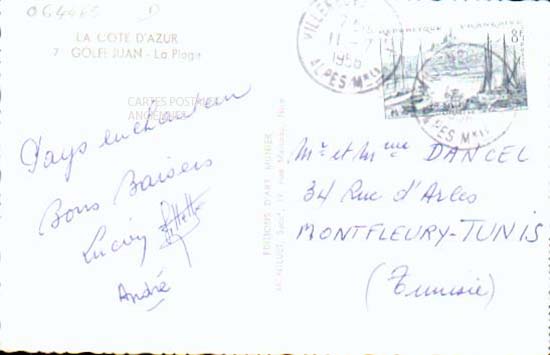 064465 D
LA COTE D'AZUR
7 GOLFE JUAN - La Plage
CARTES POSTALES
Pays enchanteur
Bons Baisers
Lucien
André
EDITIONS D'ART MUNIER
1956
ALPES Mmes
REPUBLIQUE FRANÇAISE
8F
Mr et Mme DANCEL
34 Rue d'Arles
MONTFLEURY-TUNIS
(Tunisie)